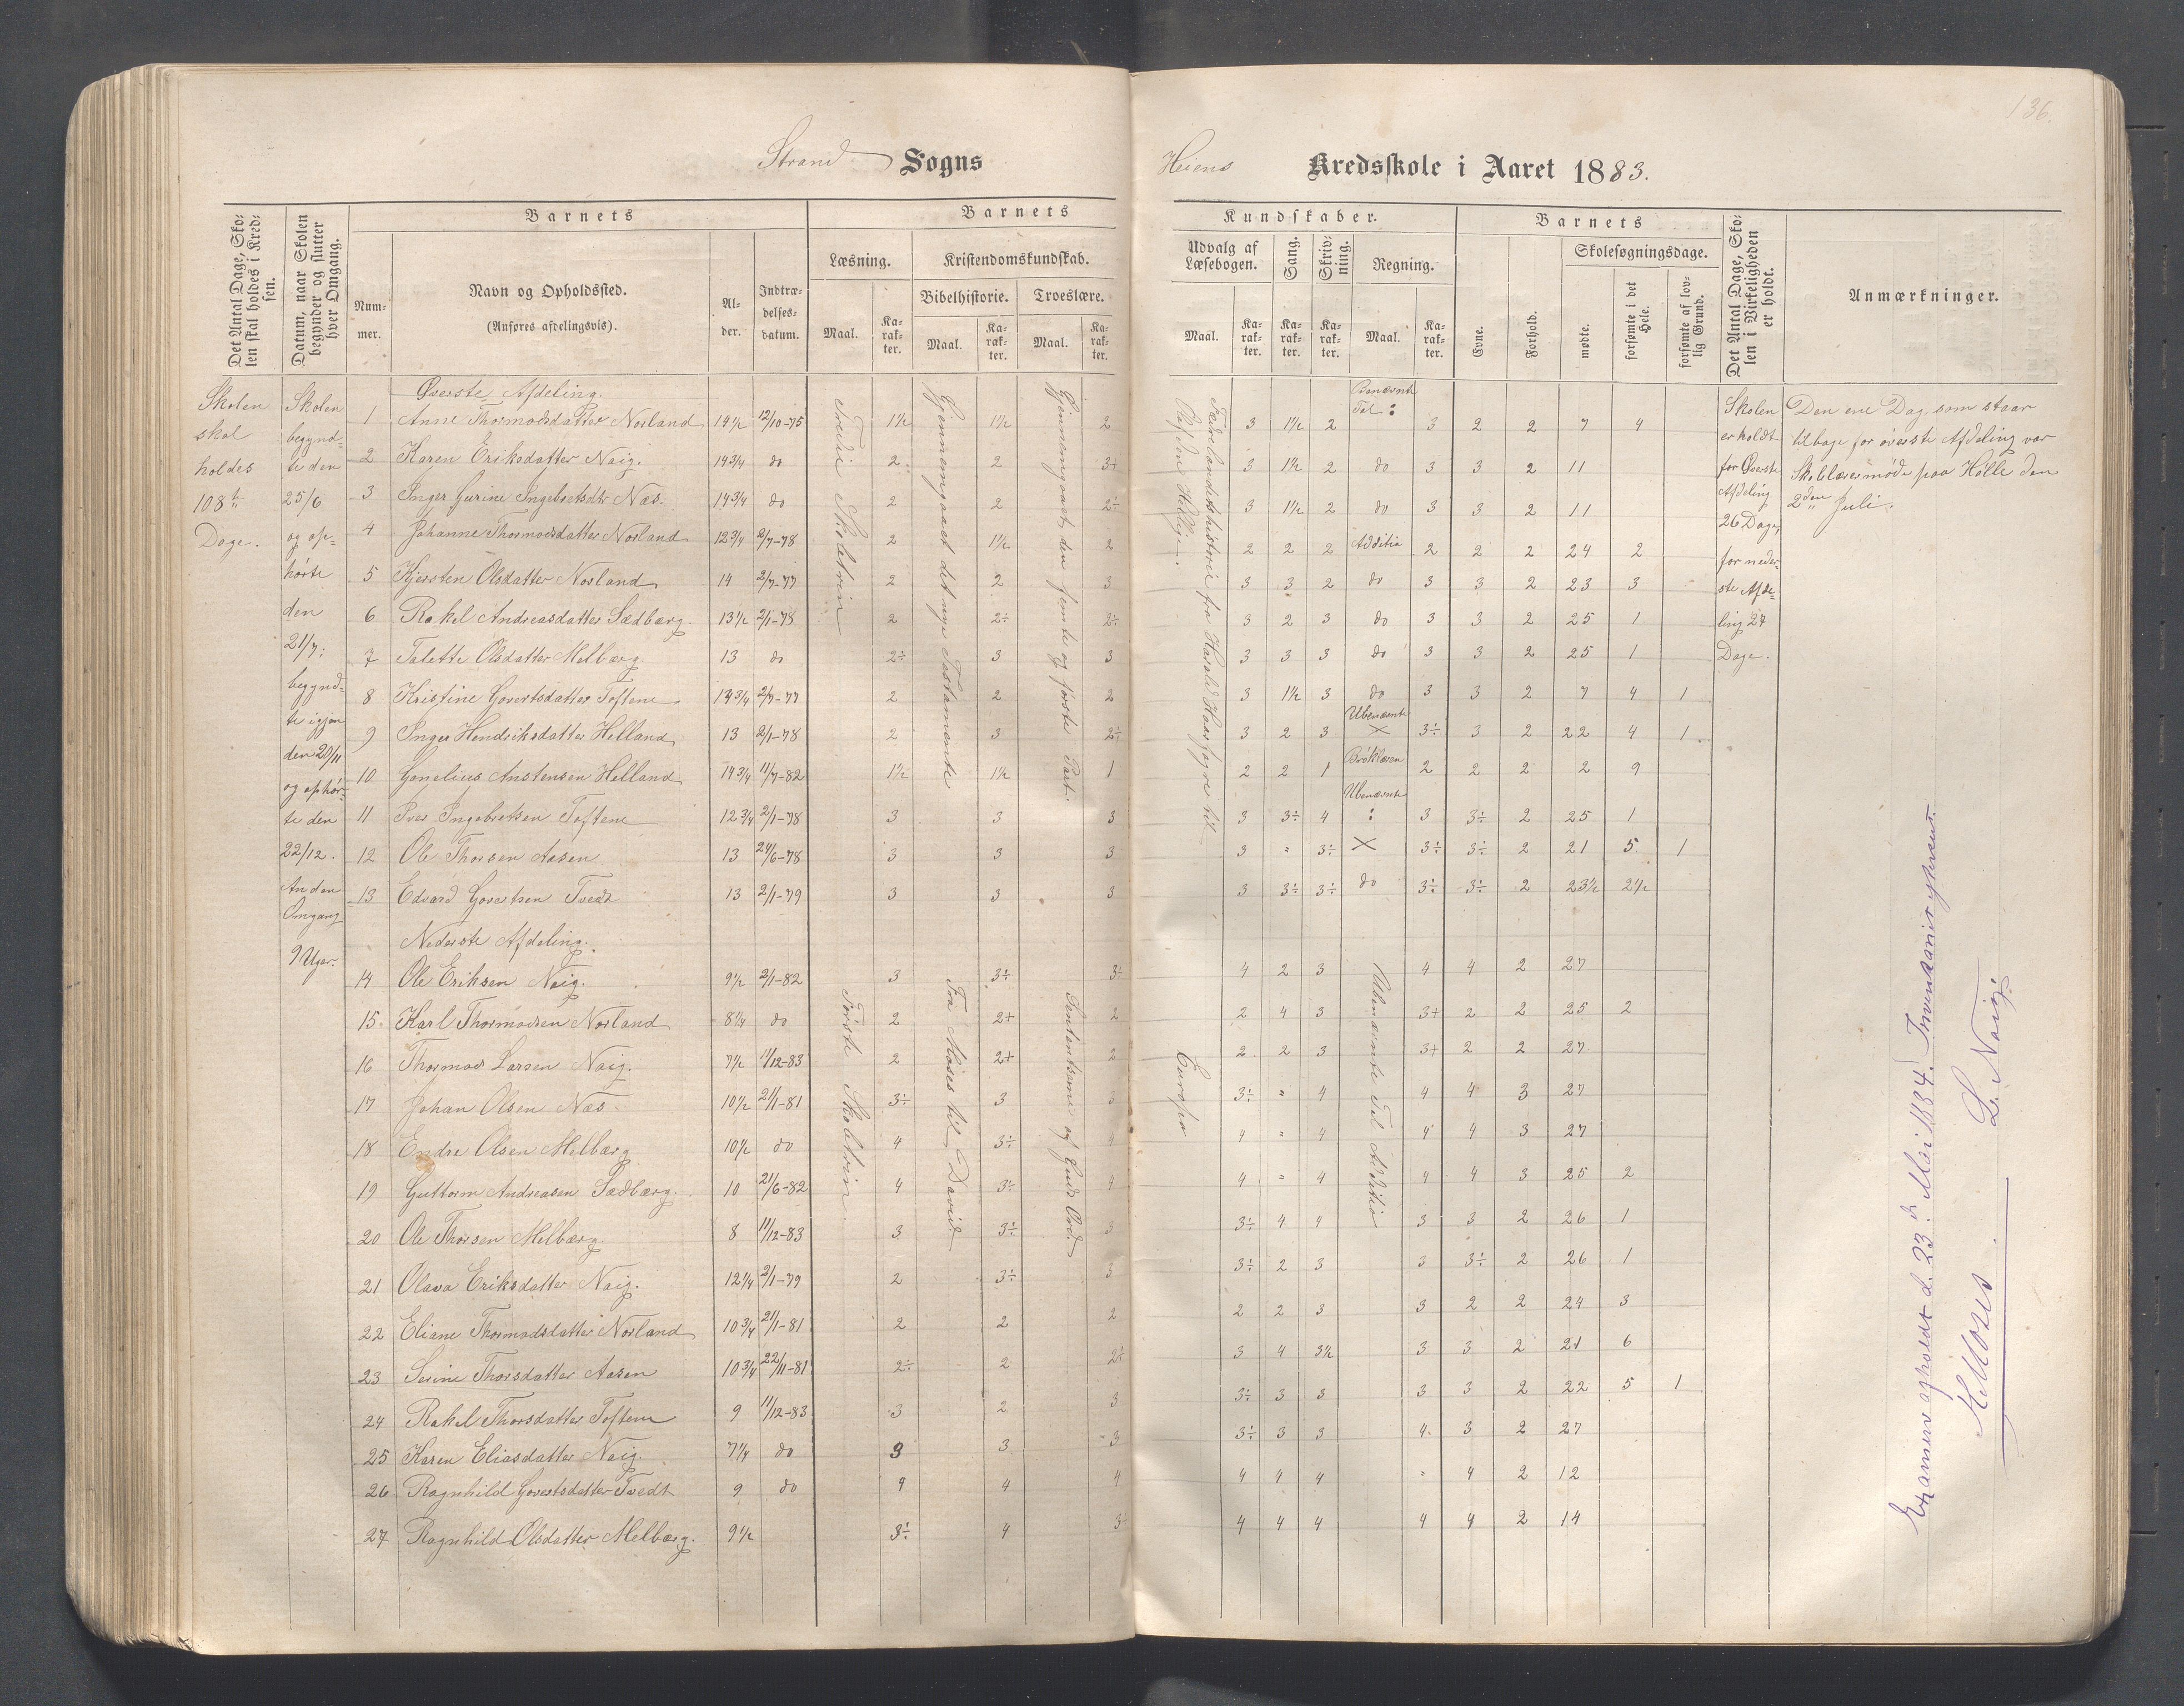 136.
Strand Sogns
Heiens Kredsskole i Aaret 1883.
Det Antal Dage, Sko-
len skal holdes i Kred-
sen.
Datum, naar Skolen
begynder og slutter
hver Omgang.
Barnets
Num-
mer.
Navn og Opholdssted.
(Anføres afdelingsvis).
Al-
der.
Indtræ-
delses-
datum.
Barnets
Læsning.
Maal.
Ka-
rak-
ter.
Kristendomskundskab.
Bibelhistorie.
Maal.
Ka-
rak-
ter.
Troeslære.
Maal.
Ka-
rak-
ter.
Kundskaber.
Udvalg af
Læsebogen.
Maal.
Ka-
rak-
ter.
Sang.
Ka-
rak-
ter.
Skriv-
ning.
Ka-
rak-
ter.
Regning.
Maal.
Ka-
rak-
ter.
Barnets
Evne.
Forhold.
Skolesøgningsdage.
mødte.
forsømte i det
Hele.
forsømte af lov-
lig Grund.
Det Antal Dage, Sko-
len i Virkeligheden
er holdt.
Anmærkninger.
Skolen
skal
holdes
108
Dage.
Skolen
begynd-
te den
25/6
og op-
hørte
den
21/7;
begynd-
te igjen
den 20/11
og ophør-
te den
22/12.
Anden
Omgang
9 Uger.
Øverste Afdeling.
1 Anne Thormodsdatter Norland 14 1/2 12/10-75 1 1/2 1 1/2 2 3 1 1/2 2 3 2 2 7 4
2 Karen Eriksdatter Naig. 14 3/4 do 2 2 3+ 3 1 1/2 2 do 3 3 2 11
3 Inger Gurine Ingebretsdtr Næs. 14 3/4 do 2 2 2÷ 3 1 1/2 2 do 3 3 2 11
4 Johanne Thormodsdatter Norland 12 3/4 2/7-78 2 1 1/2 2 2 2 2 Additio 2 2 2 24 2
5 Kjersten Olsdatter Norland 14 2/7-77 2 2 3 3 3 2 do 3 3 2 23 3
6 Rakel Andreasdatter Sædbærg. 13 1/2 2/1-78 2 2÷ 2÷ 3 2 3 do 3 3 2 25 1
7 Talette Olsdatter Melbærg 13 do 2÷ 3 3 3 3 3 do 3 3 2 25 1
8 Kristine Govertsdatter Toftene 13 3/4 2/7-77 2 2 2 3 1 1/2 3 do 3 3 2 7 4 1
9 Inger Hendriksdatter Helland 13 2/1-78 2 3 2÷ 3 2 3 Ubenævnte X 3÷ 3 2 22 4 1
10 Gonelius Anstensen Helland 14 3/4 11/7-82 1 1/2 1 1/2 1 2 2 1 2 2 2 2 9
11 Iver Ingebretsen Toftene 12 3/4 2/1-78 3 3 3 3 3÷ 4 Ubenævnte : 3 3÷ 2 25 1
12 Ole Thorsen Aasen 13 24/6-78 3 3 3 3 " 3÷ X 3÷ 3÷ 2 21 5 1
13 Edvard Govertsen Tvedt 13 2/1-79 3 3 3 3 3÷ 3÷ do 3÷ 3÷ 2 23 1/2 2 1/2
Nederste Afdeling.
14 Ole Eriksen Naig. 9 1/2 2/1-82 3 3÷ 3÷ 4 2 3 4 4 2 27
15. Karl Thormodsen Norland 8 1/4 do 2 2+ 2 2 4 3 3+ 2 2 25 2
16 Thormod Larsen Naig. 7 1/2 11/12-83 2 2+ 2 2 2 3 3+ 2 2 27
17 Johan Olsen Næs 10 1/2 21/1-81 3÷ 3 3 3÷ " 4 4 4 3 27
18 Endre Olsen Melbærg 10 1/2 do 4 3÷ 4 4 " 4 4 4 3 27
19 Guttorm Andreasen Sædbærg. 10 21/6-82 4 3÷ 4 4 " 4 4 4 3 25 2
20 Ole Thorsen Melbærg. 8 11/12-83 3 3÷ 3 3÷ 4 4 3 3 2 26 1
21 Olava Eriksdatter Naig. 12 1/4 2/1-79 2 3÷ 3 3÷ 2 3 3 3÷ 2 26 1
22 Eliane Thormodsdatter Norland 10 3/4 21/1-81 2 2 2 2 2 3 3 2 2 24 3
23 Serine Thorsdatter Aasen 10 3/4 22/11-81 2÷ 2 2÷ 3 4 3 1/2 3 3 2 21 6
24 Rakel Thorsdatter Toftene 9 11/12-83 3 2 3 3÷ 3 3 3 3 2 22 5 1
25 Karen Eliasdatter Naig. 7 1/4 do 3 3 3 3÷ 3 3 4. 3 2 27
26 Ragnhild Govertsdatter Tvedt 9 do 4 4 4 4 4 4 " 4 2 12
27 Ragnhild Olsdatter Melbærg. 9 1/2 3÷ 4 3÷ 4 4 4 4 4 2 14
Tredie Skoletrin
Gjennemgaaet det nye Testamente
Gjennemgaaet den femte og første Part.
Fædrelandshistorie fra Harald Haarfagre til
Olaf den Hellige.
Benævnte
Tal :
Første Skoletrin.
Fra Moses til David
Sententserne af Guds Ord.
Europa
Ubenævnte Tal Additio
Skolen
er holdt
for Øverste
Afdeling
26 Dage,
for neder-
ste Afde-
ling 27
Dage.
Den ene Dag, som staar
tilbage for øverste Afdeling var
Skolelærermøde paa Hølle den
2den Juli.
Examen afholdt d. 23de Mai 1884.
L. Naig.